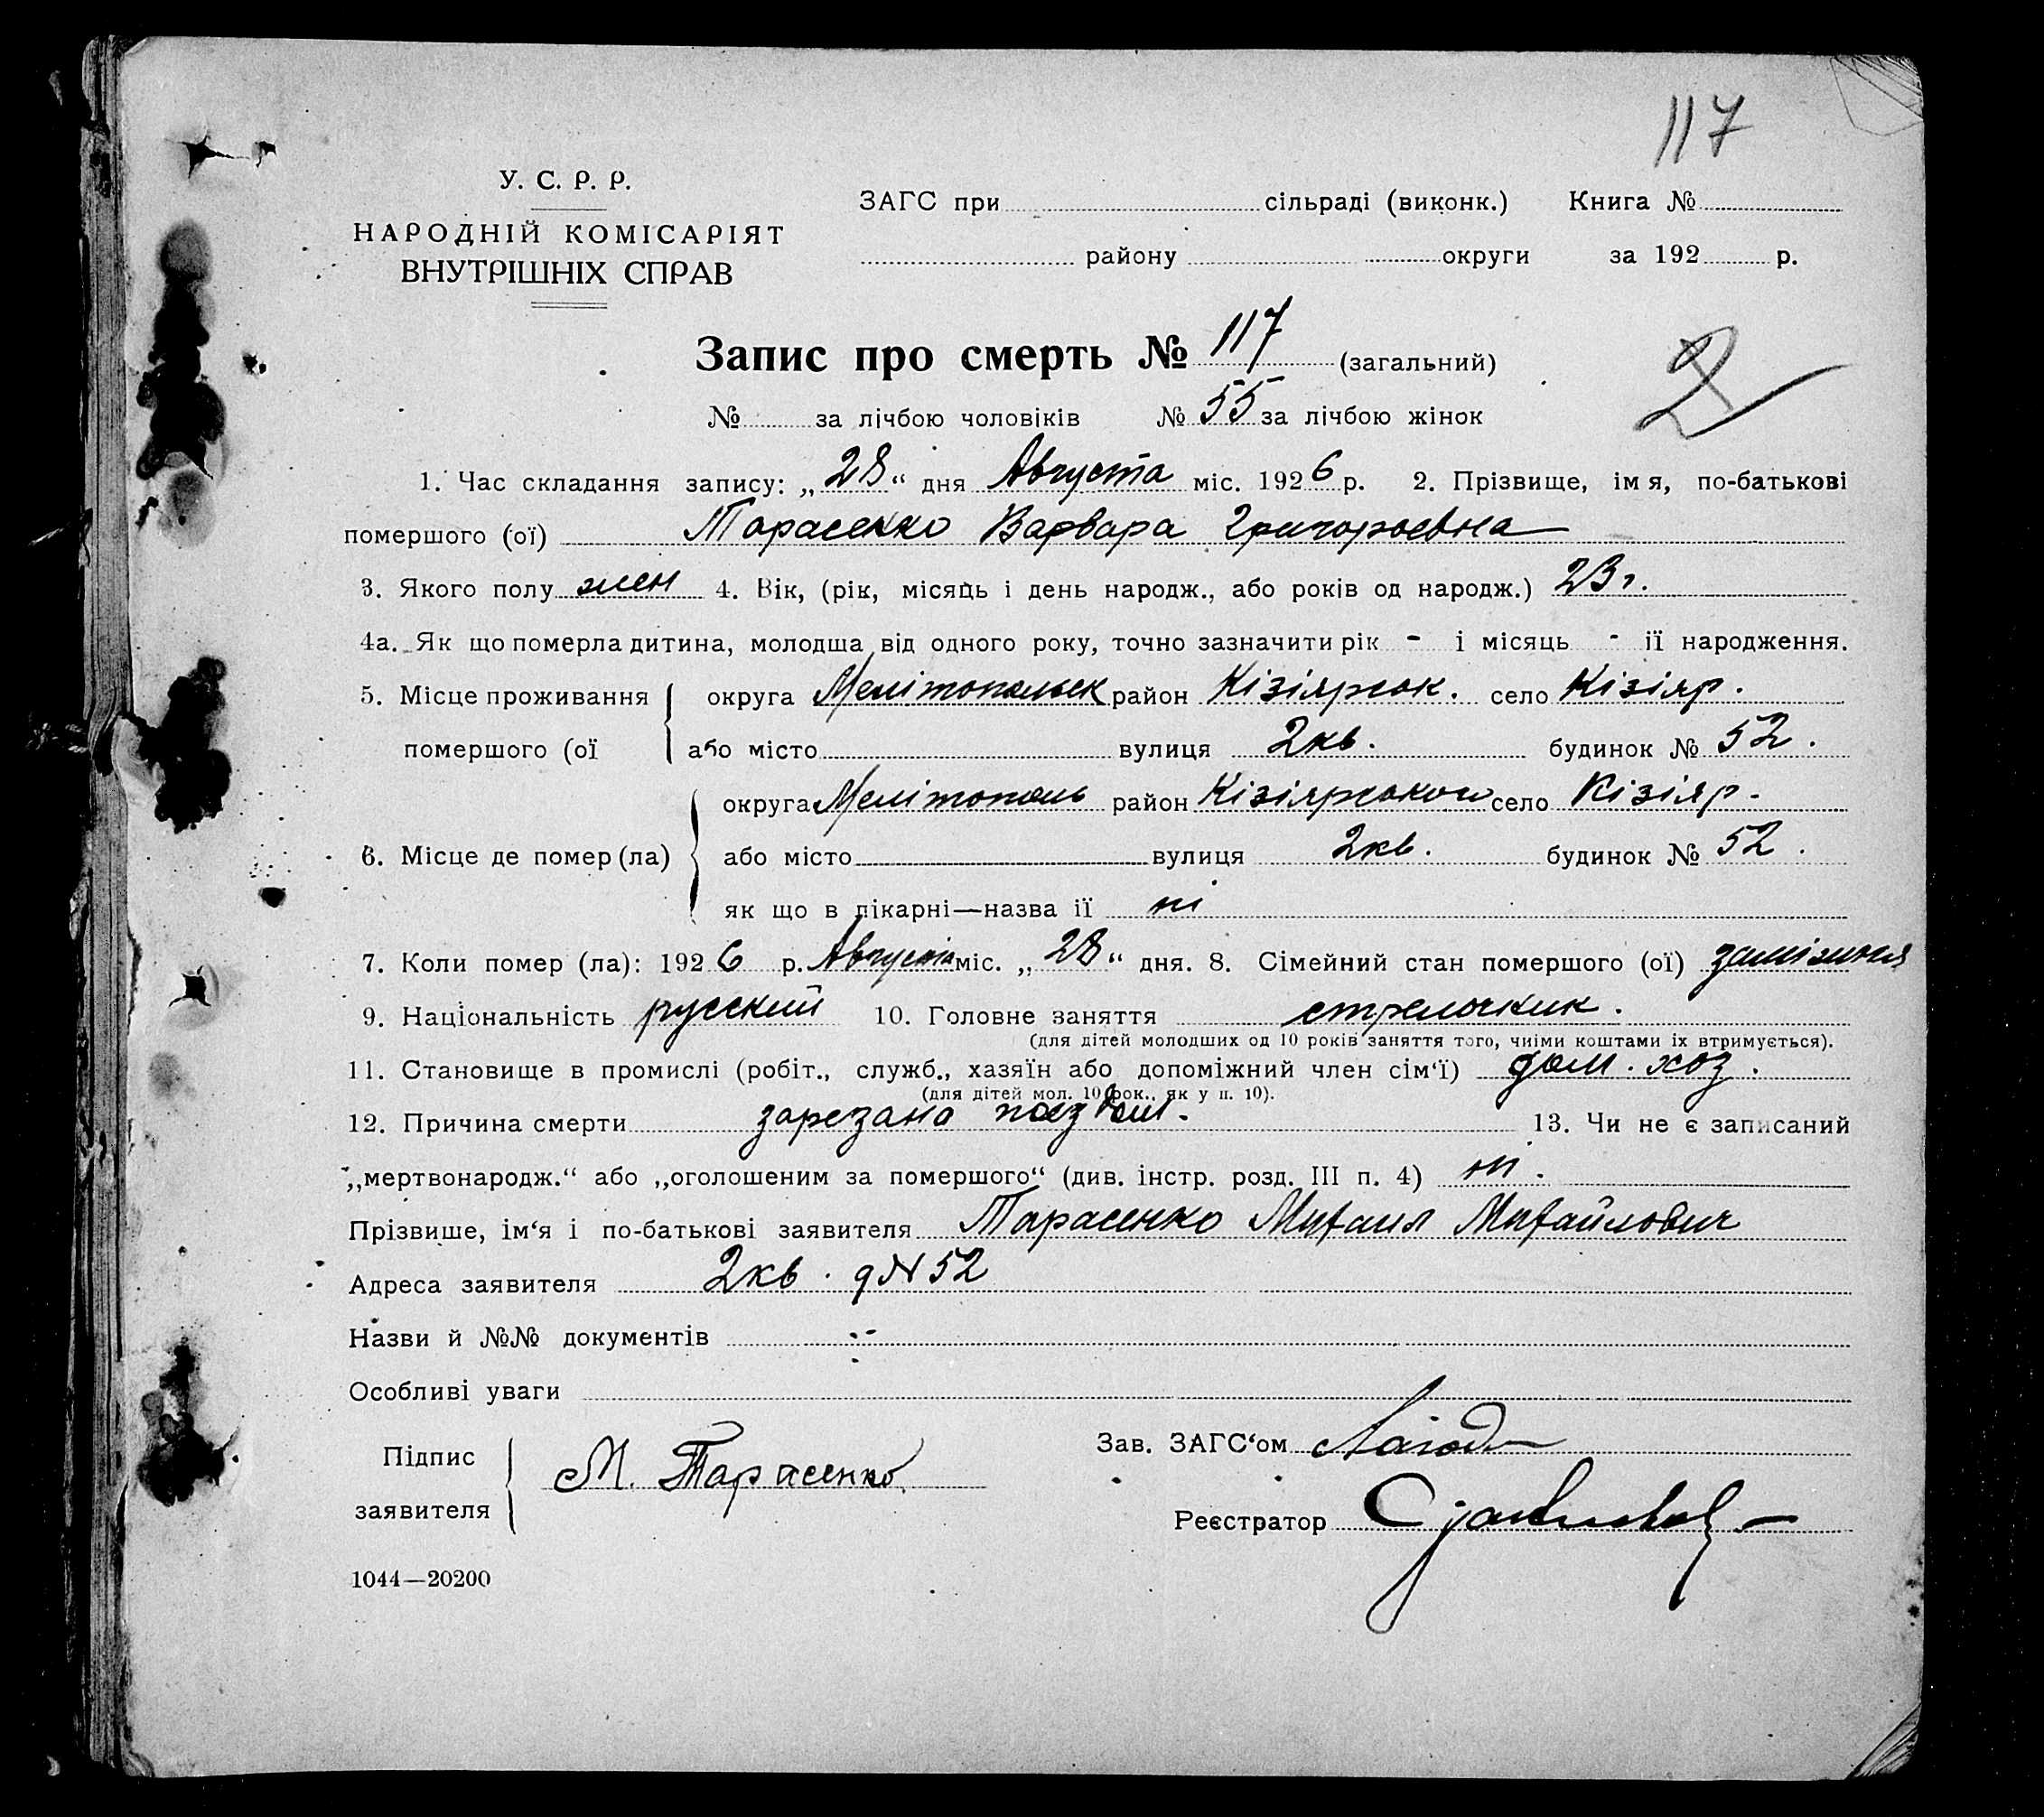 117
У. С. Р. Р.
НАРОДНІЙ КОМІСАРІЯТ
ВНУТРІШНІХ СПРАВ
ЗАГС при сільраді (виконк.) Книга №
району округи за 192 р.
Запис про смерть № 117 (загальний)
2
№ за лічбою чоловіків № 55 за лічбою жінок
1. Час складання запису: „28“ дня Августа міс. 1926 р. 2. Прізвище, імя, по-батькові
помершого (ої) Тарасенко Варвара Григорьевна
3. Якого полу жен 4. Вік, (рік, місяць і день народж., або років од народж.) 23 г.
4а. Як що померла дитина, молодша від одного року, точно зазначити рік - і місяць - ії народження.
5. Місце проживання округа Мелітопольск район Кізіярськ. село Кізіяр.
помершого (ої або місто вулиця 2кв. будинок № 52.
округа Мелітополь район Кізіярського село Кізіяр.
6. Місце де помер(ла) або місто вулиця 2кв. будинок № 52.
як що в лікарні—назва ії ні
7. Коли помер (ла): 1926 р. Августа міс. „28“ дня. 8. Сімейний стан помершого (ої) замізнья
9. Національність русский 10. Головне заняття стрелочник.
(для дітей молодших од 10 років заняття того, чиїми коштами їх втримується).
11. Становище в промислі (робіт., служб., хазяїн або допоміжний член сім‘ї) дом. хоз.
(для дітей мол. 10 рок., як у п. 10).
12. Причина смерти зарезана поездом. 13. Чи не є записаний
„мертвонародж.“ або „оголошеним за помершого“ (див. інстр. розд. III п. 4) ні.
Прізвише, ім‘я і по-батькові заявителя Тарасенко Михаил Михайлович
Адреса заявителя 2кв. д№ 52
Назви й №№ документів
Особливі уваги
Підпис
заявителя М. Тарасенко
Зав. ЗАГС‘ом
Реєстратор
1044—20200